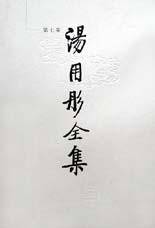 第七卷
湯用彤全集